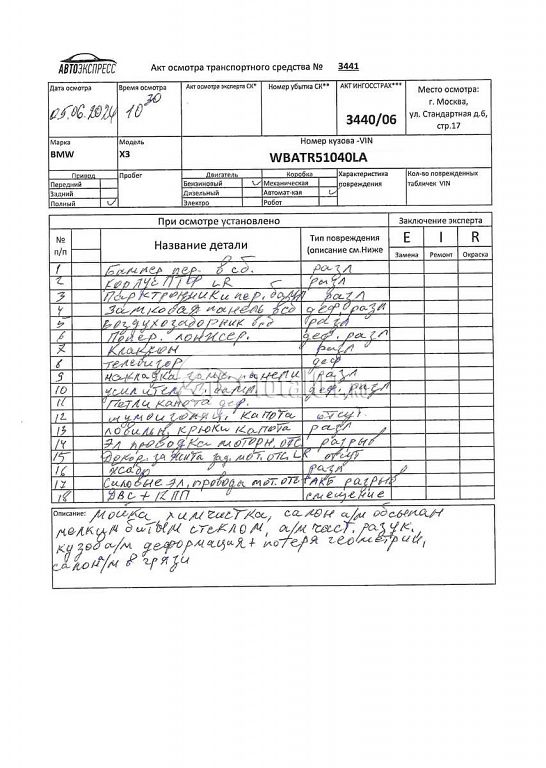 АВТОЭКСПРЕСС
Акт осмотра транспортного средства № 3441
Дата осмотра Время осмотра Акт осмотра эксперта СК* Номер убытка СК** АКТ ИНГОССТРАХ*** Место осмотра:
05.06.2024 10 30 3440/06 г. Москва,
ул. Стандартная д.6,
стр.17
Марка Модель Номер кузова -VIN
BMW X3 WBATR51040LA
Привод Пробег Двигатель Коробка Характеристика повреждения Кол-во поврежденных табличек VIN
Передний Бензиновый Механическая
Задний Дизельный Автомат-кая
Полный Электро Робот
При осмотре установлено Заключение эксперта
№ п/п Название детали Тип повреждения (описание см.Ниже E I R
Замена Ремонт Окраска
1 Бампер пер. в сб. разл
2 корпус ПТФ LR разл
3 Парктроники пер. разл
4 Замковая панель всб деф. разл
5 воздухозаборник разл
6 Попер. лонжер. деф. разл
7 Клаксон разл
8 телевизор деф
9 накладка замк. панели разл
10 усилитель деф. разл
11 Петли капота деф.
12 шумоизоляц. капота отсут.
13 ловильн. крюки капота разл
14 Эл проводка моторн. отс разрыв
15 зад. мот. отс. LR отсут
16 разл
17 Силовые эл. провода мот. отс + АКБ разрыв
18 ДВС + КПП смещение
Описание: Мойка химчистка, салон а/м обсыпан
мелким битым стеклом, а/м част. разук.
кузов а/м деформация + потеря геометрии,
салон/м в грязи